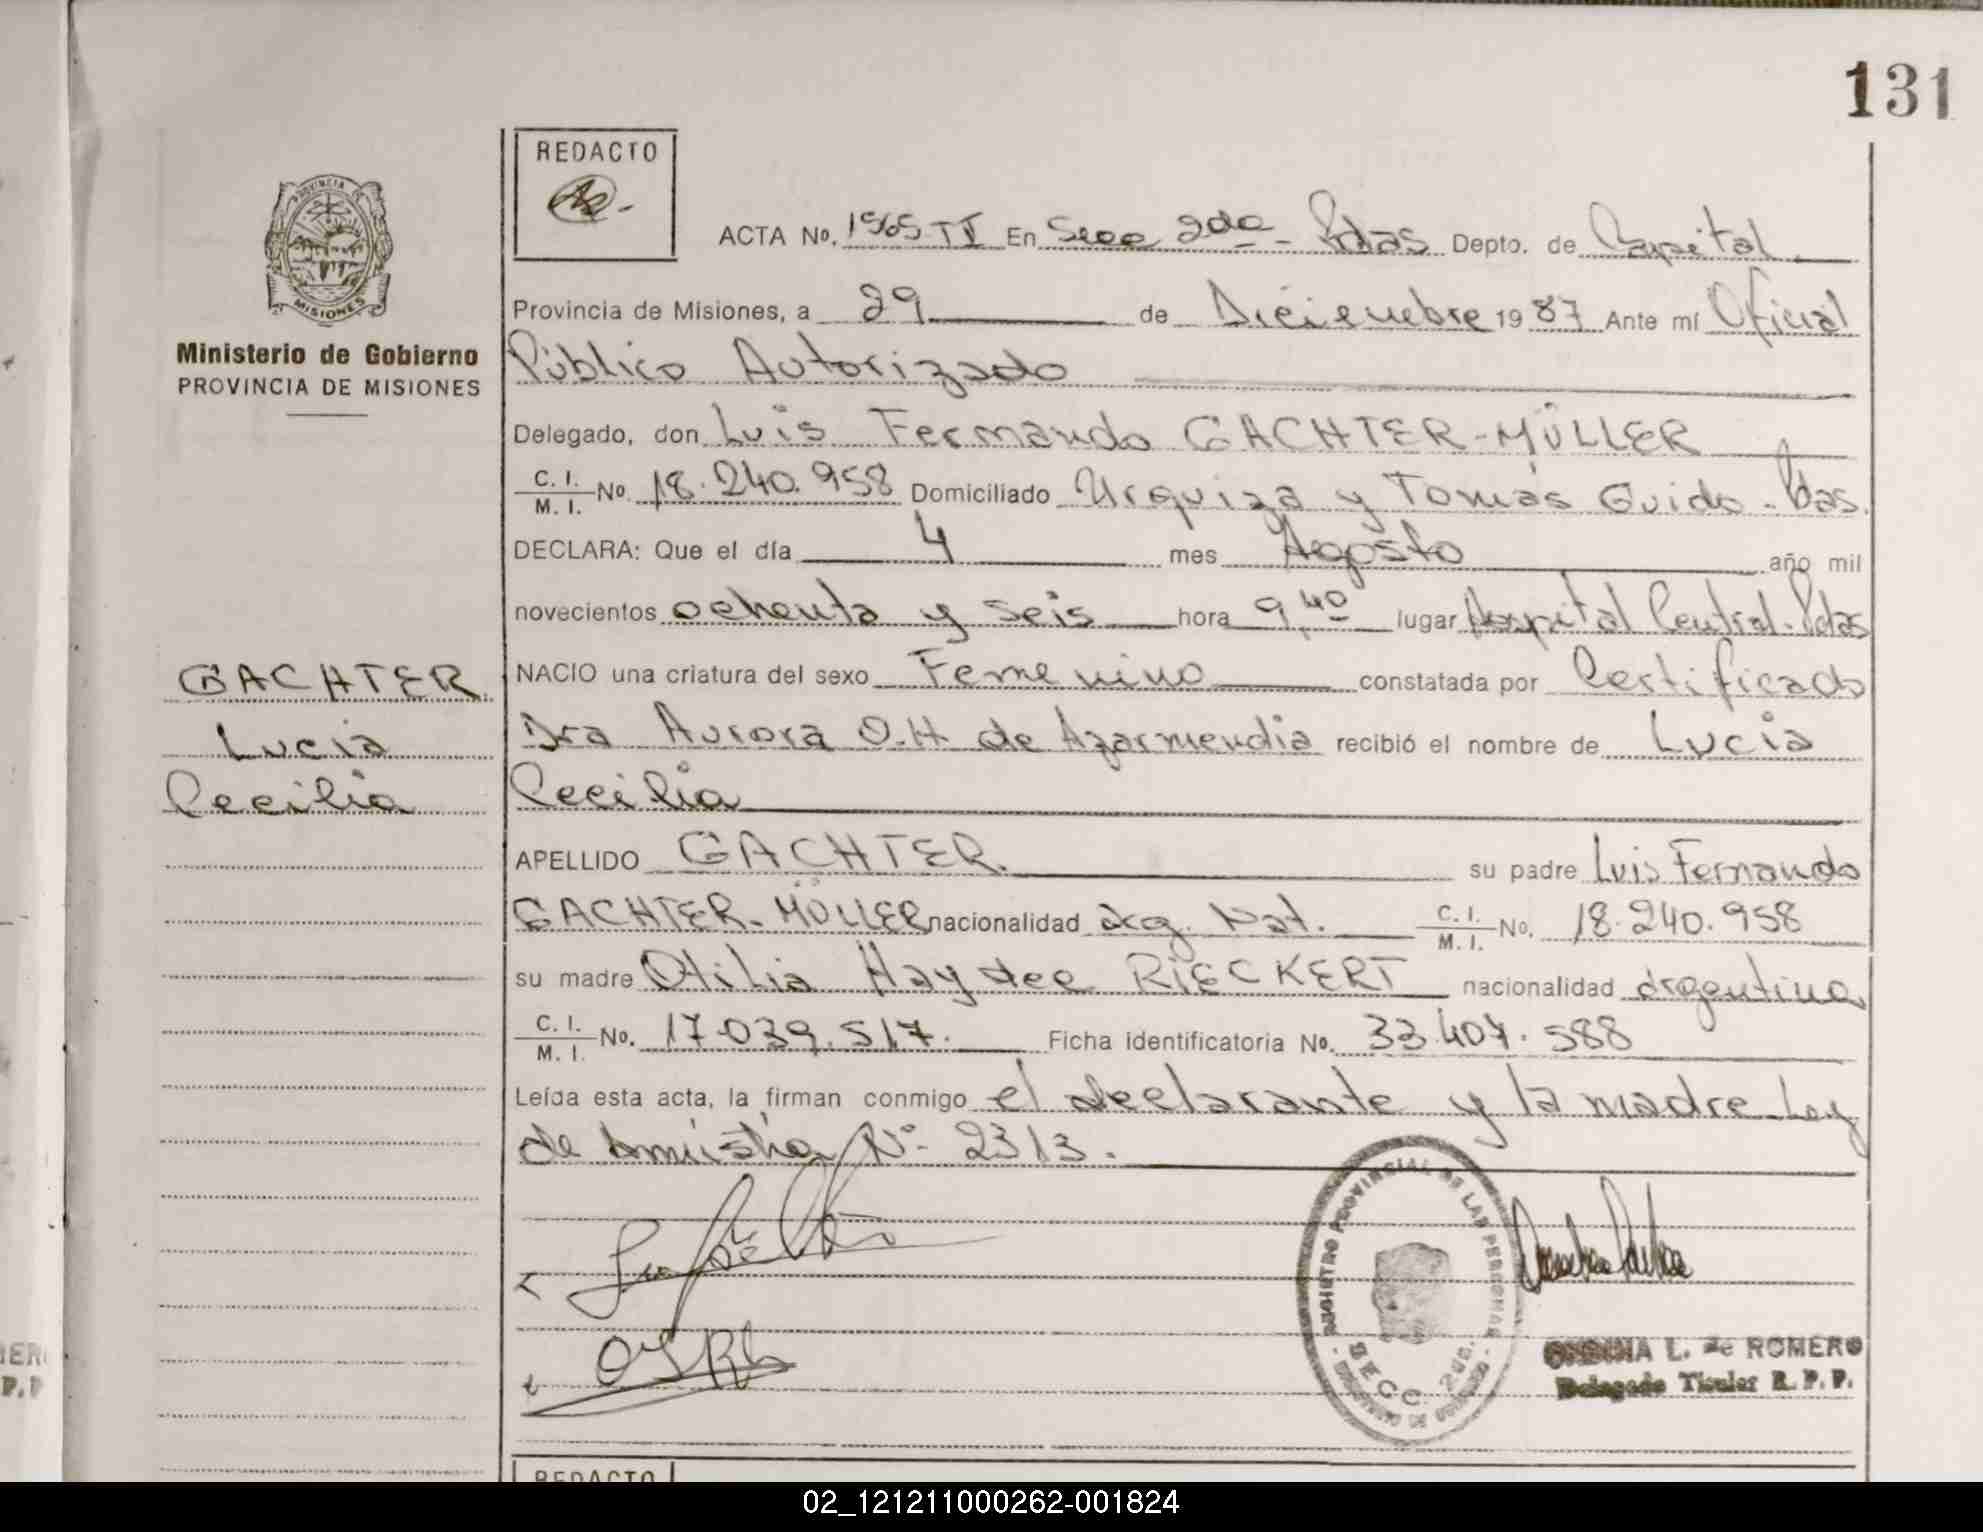 131
REDACTO
PROVINCIA DE
MISIONES
Ministerio de Gobierno
PROVINCIA DE MISIONES
ACTA No. 1565 TI En Secc 2da - Pdas Depto. de Capital
Provincia de Misiones, a 29 de Diciembre 1987 Ante mí Oficial
Público Autorizado
Delegado, don Luis Fernando GACHTER-MÜLLER
C. I. M. I. No. 18.240.958 Domiciliado Urquiza y Tomás Guido - Pdas.
DECLARA: Que el día 4 mes Agosto año mil
novecientos ochenta y seis hora 9,40 lugar Hospital Central-Pdas
NACIO una criatura del sexo Femenino constatada por Certificado
Dra Aurora O.H de Azarmendia recibió el nombre de Lucia
Cecilia
APELLIDO GACHTER. su padre Luis Fernando
GACHTER-MÜLLER nacionalidad arg. Nat. C. I. M. I. No. 18.240.958
su madre Otilia Haydee RIECKERT nacionalidad argentina
C. I. M. I. No. 17.039.517. Ficha identificatoria No. 33.407.588
Leída esta acta, la firman conmigo el declarante y la madre Ley
de Amnistia Nº 2313.
GACHTER
Lucia
Cecilia
REGISTRO PROVINCIAL DE LAS PERSONAS
SECC. 2da.
L. de ROMERO
Delegado Titular R. P. P.
REDACTO
02_121211000262-001824